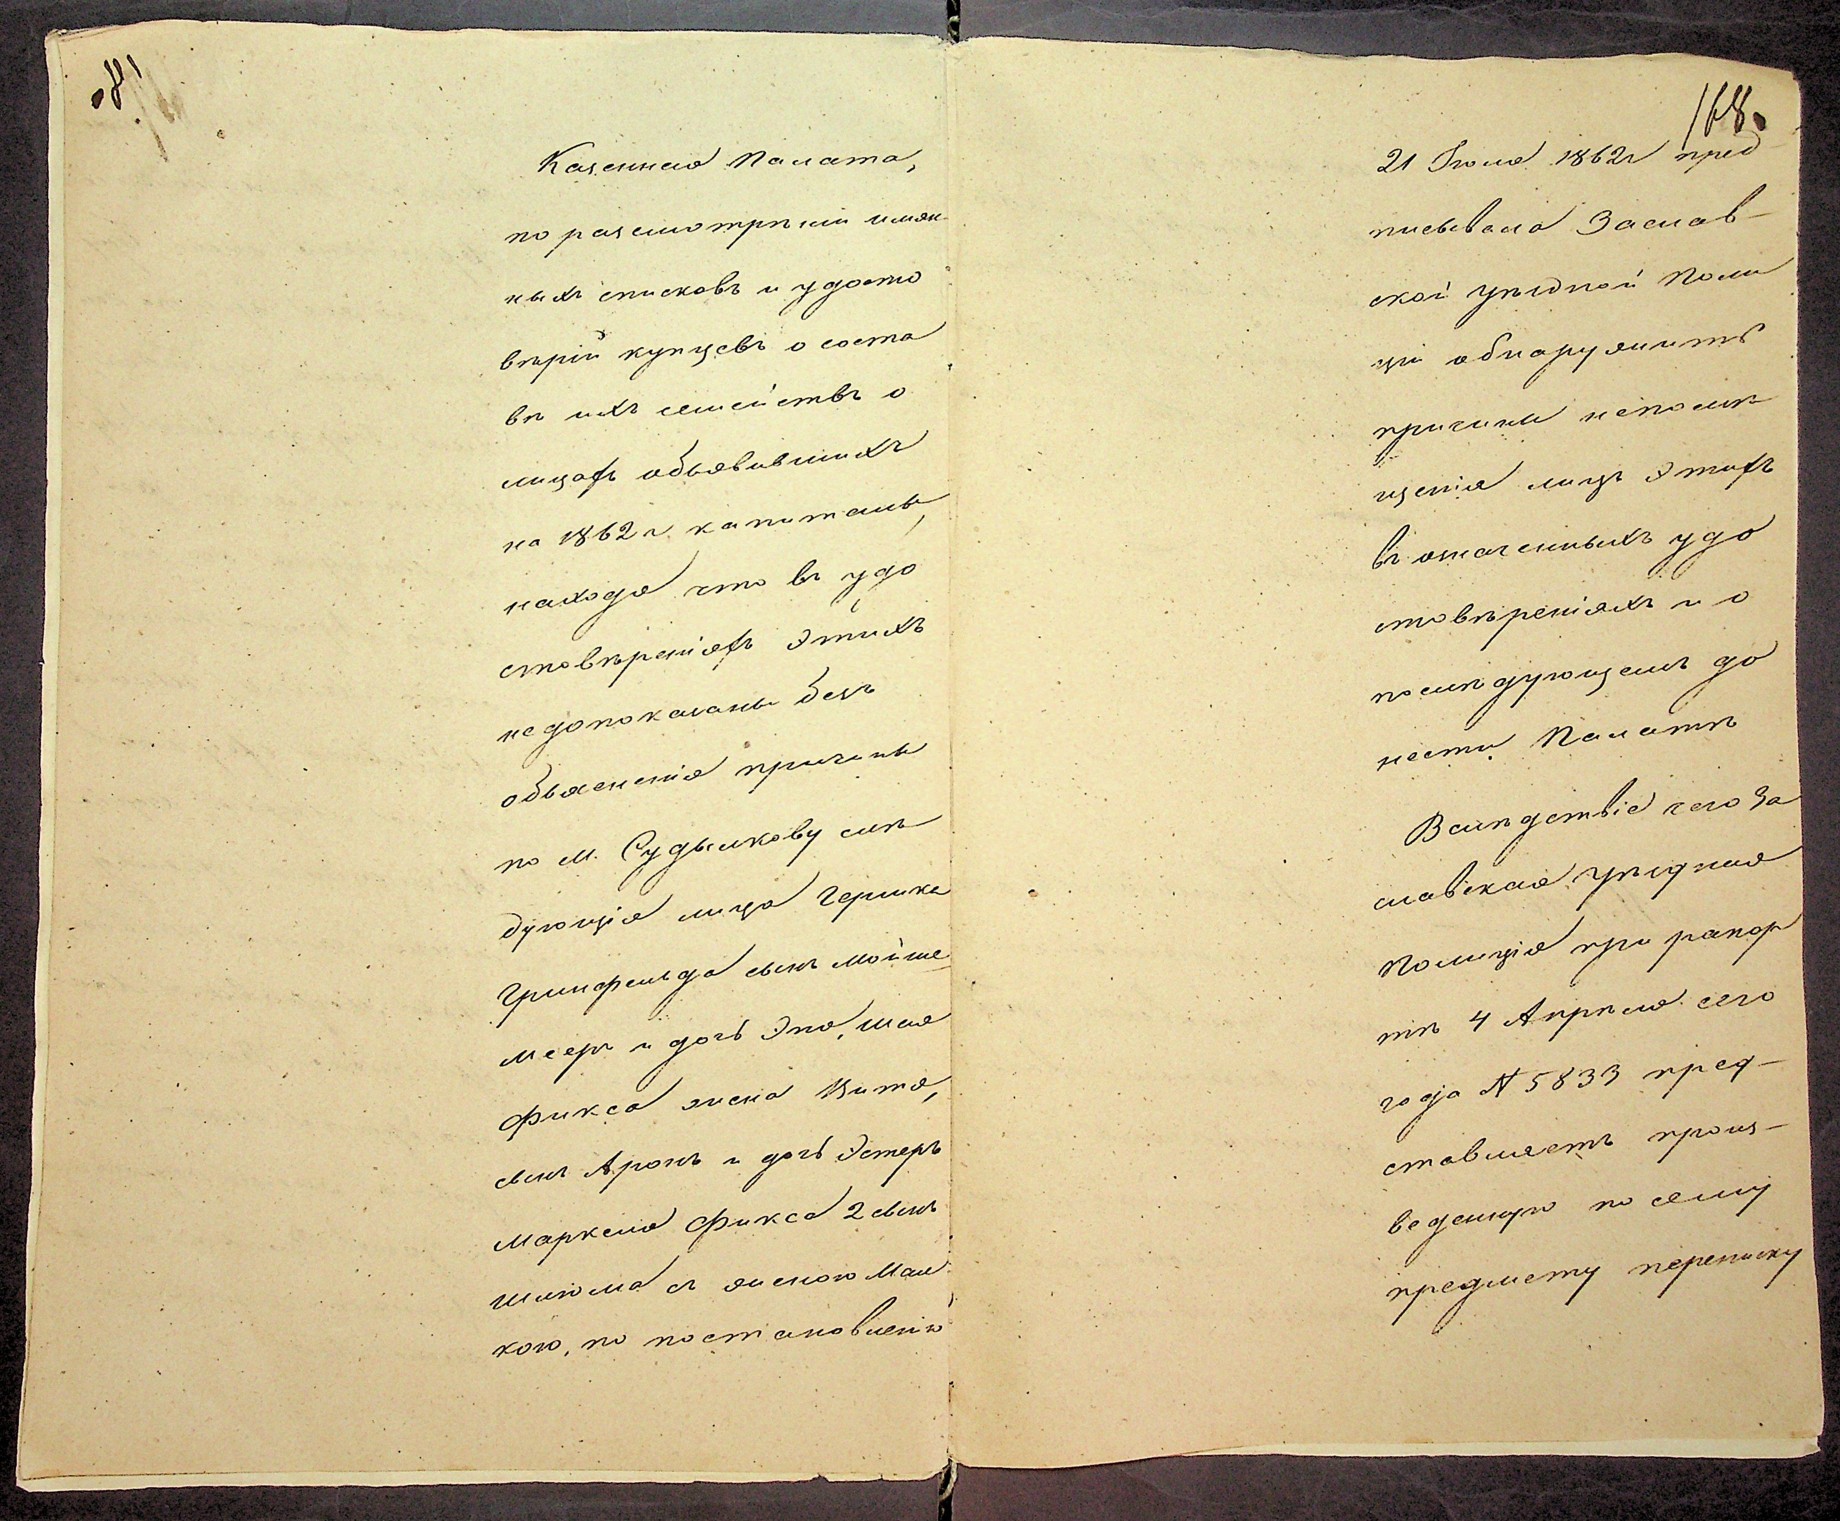 Казенная Палата,
по разсмотрѣніи имян-
ныхъ списковъ и удосто
вѣрій купцевъ о соста
вѣ ихъ семействъ о
лицахъ объявившихъ
на 1862 г. капиталы,
находя что въ удо
стовѣреніяхъ этихъ
не допоказаны безъ
объясненія причины
по м. Судылкову слѣ
дующія лица Гершка
Гринфельда сынъ Мойше
Мееръ и дочь Эпа, Шая
Фикса жена Витя,
сынъ Аронъ и дочь Эстеръ
Маркеля Фикса 2 сынъ
Шлюма съ женою Мал
кою, по постановленію
168.
21 Іюля 1862 г. пред
писывала Заслав-
ской уѣздной Поли
ціи обнаружить
причины непомѣ
щенія лицъ этихъ
въ означенныхъ удо
стовѣреніяхъ и о
послѣдующемъ до
нести Палатѣ
Вслѣдствіе чего За
славская уѣздная
Полиція при рапор
тѣ 4 Апрѣля сего
года № 5833 пред-
ставляетъ произ-
веденную по сему
предмету переписку